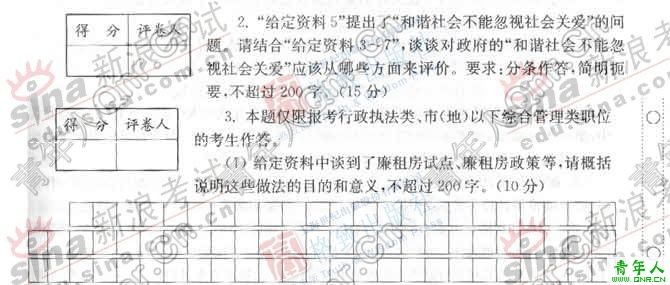 得 分 评卷人
2. “给定资料5”提出了“和谐社会不能忽视社会关爱”的问
题。请结合“给定资料3-97”,谈谈对政府的“和谐社会不能忽
视社会关爱”应该从哪些方面来评价。要求:分条作答,简明扼
要,不超过200字。(15分)
得 分 评卷人
3. 本题仅限报考行政执法类、市(地)以下综合管理类职位
的考生作答。
(1) 给定资料中谈到了廉租房试点、廉租房政策等,请概括
说明这些做法的目的和意义,不超过200字。(10分)
sina新浪考试
edu.sina.com.cn
青年人
Qnr.cn
青年人
WWW.QNR.CN